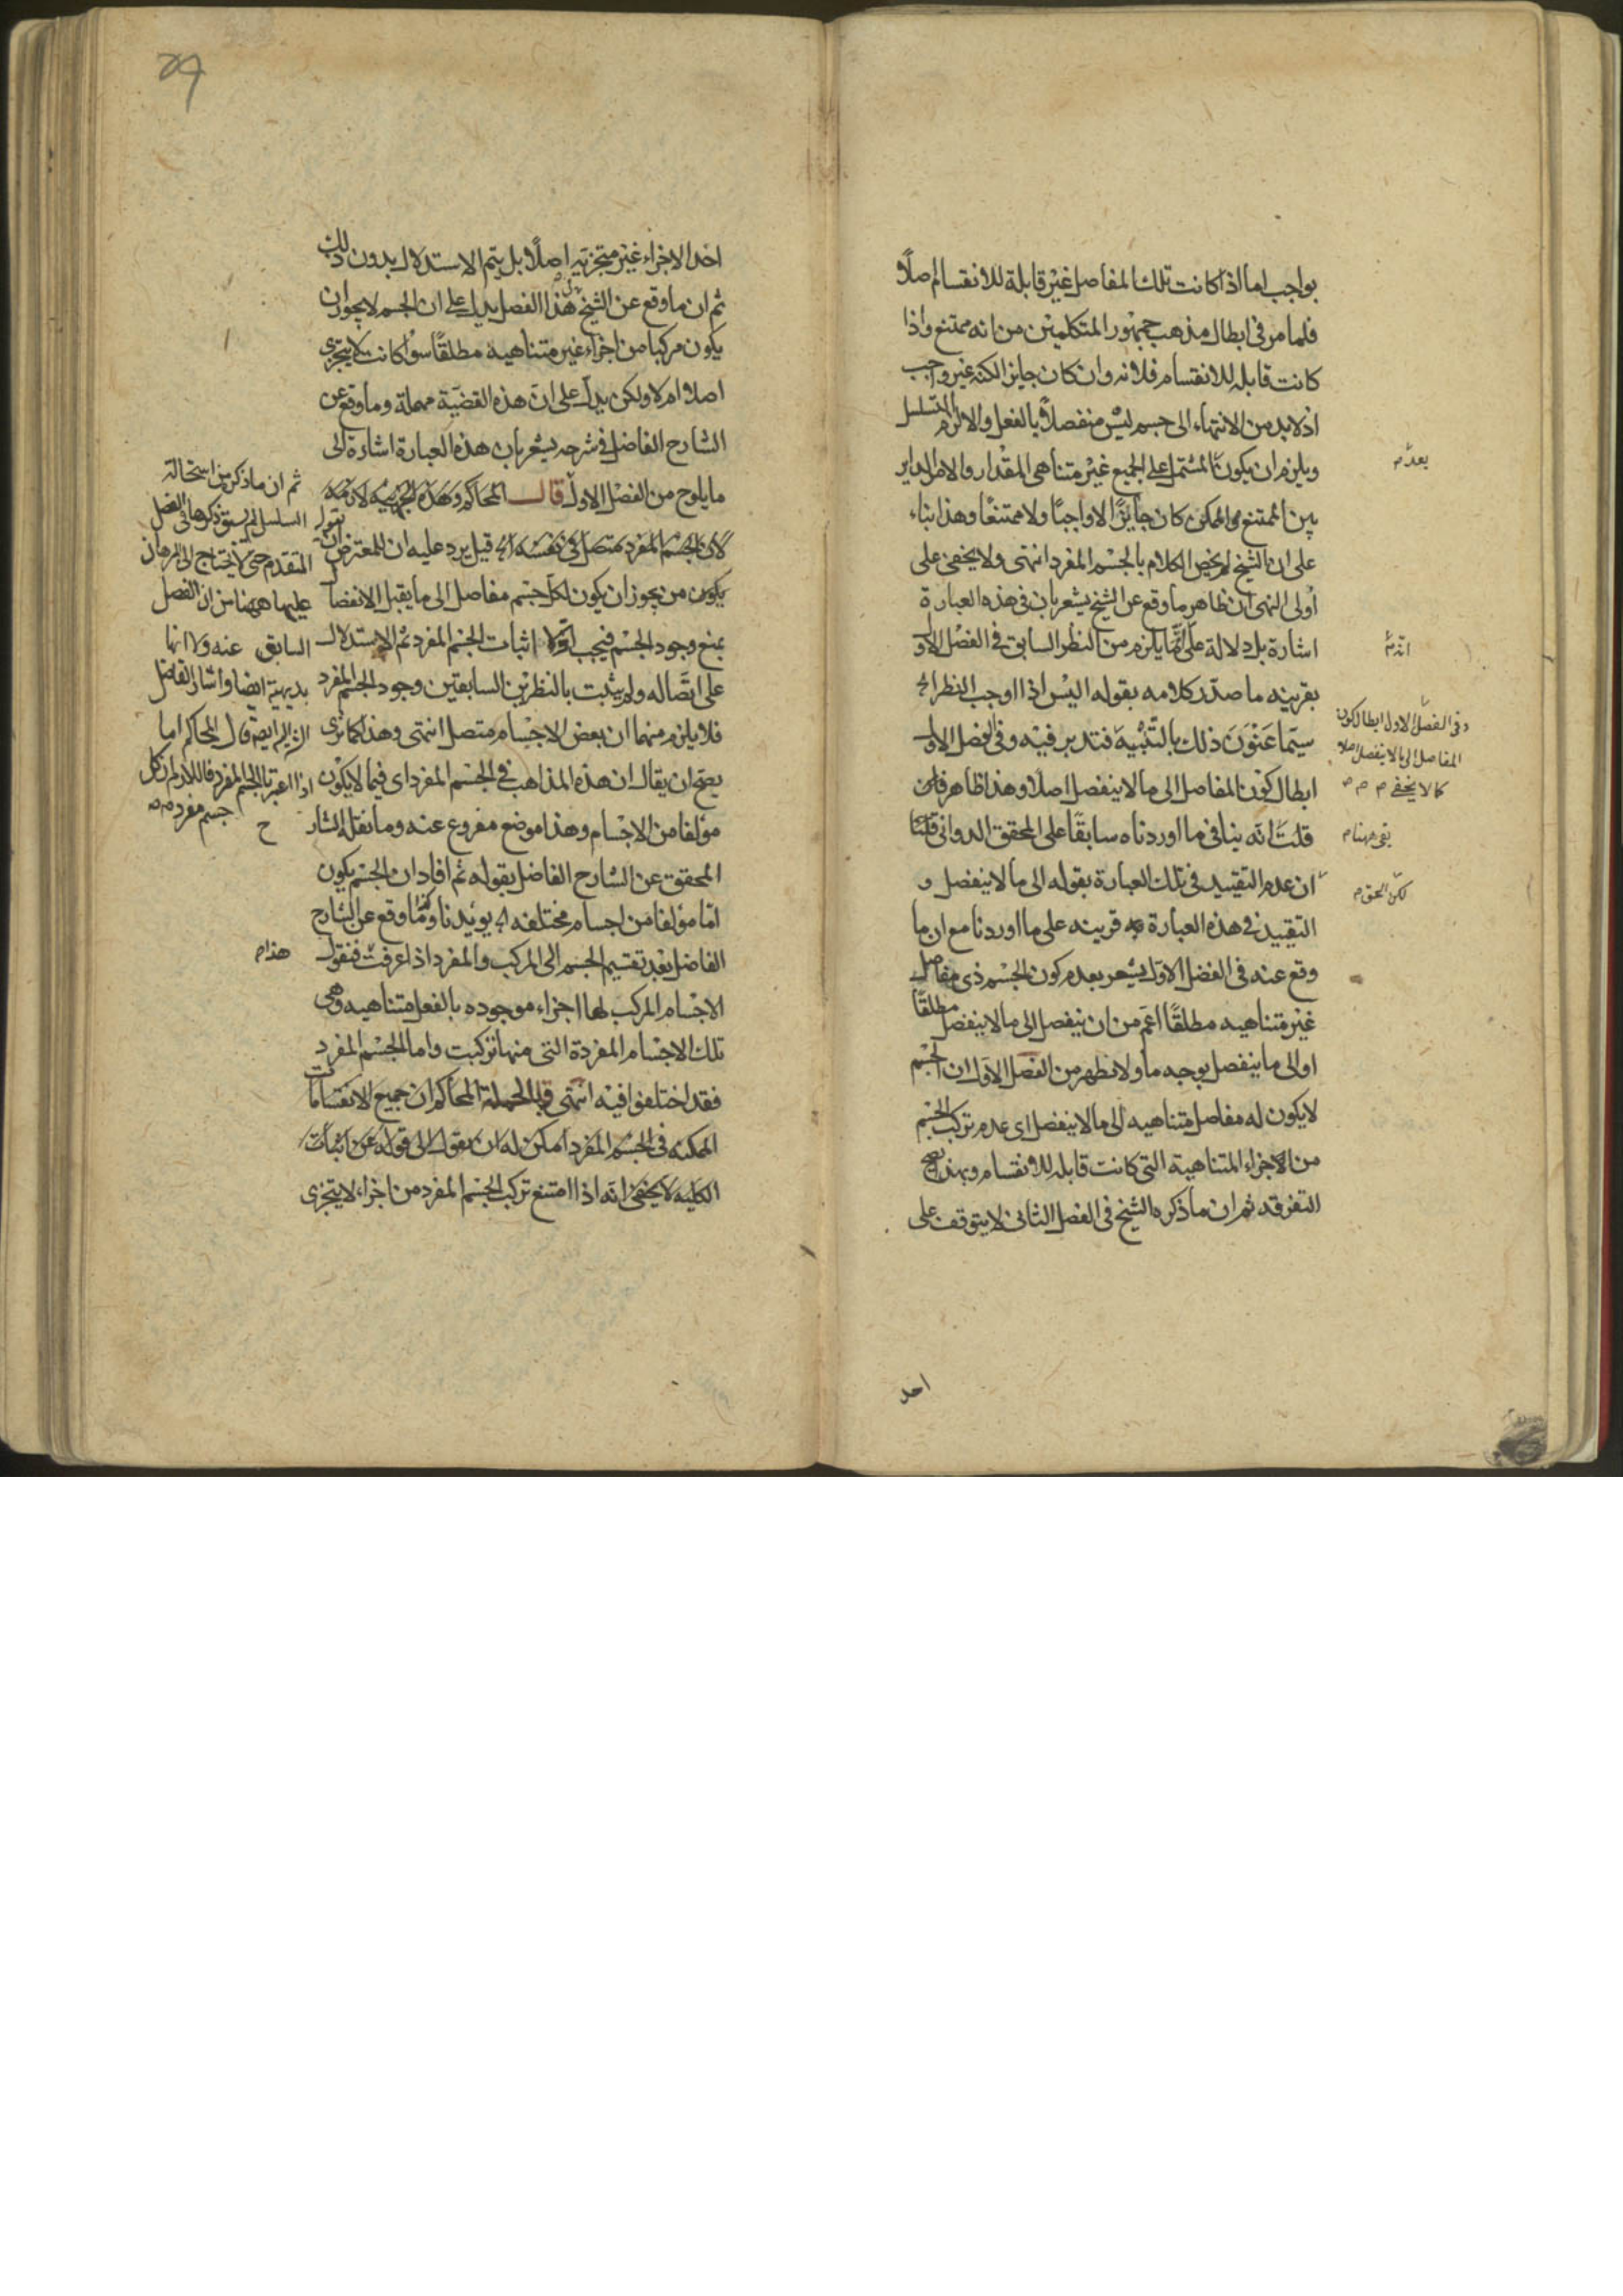 بواجب اما اذا كانت تلك المفاصل غير قابلة للانقسام اصلا
فلما مر فى ابطال مذهب جمهور المتكلمين من انه ممتنع واذا
كانت قابله للانقسام فلانه وان كان جايز الكنه غير واجب
اذ لا بد من الانتهاء الى جسم ليس منفصلا بالفعل والا لزم التسلسل
ويلزم ان يكون المشتمل على الجميع غير متناهى المقدار والامر الداير
بين الممتنع والممكن كان جايزا لا واجبا ولا ممتنعا وهذا بناء
على ان الشيخ لم يخص الكلام بالجسم المفرد انتهى ولا يخفى على
اولى النهى ان ظاهر ما وقع عن الشيخ يشعر بان فى هذه العبارة
اشارة بل دلالة على ما يلزم من النظر السابق فى الفصل الاو
بقرينه ما صدر كلامه بقوله اليس اذا اوجب النظر الخ
سيما عنون ذلك بالتنبيه فتدبر فيه وفى الفصل الاول
ابطال كون المفاصل الى ما لا ينفصل اصلا وهذا ظاهر فان
قلت انه ينافى ما اوردناه سابقا على المحقق الدوانى قلنا
ان عدم التقييد فى تلك العبارة بقوله الى ما لا ينفصل و
التقييد فى هذه العبارة به قرينه على ما اوردنا مع ان ما
وقع عنه فى الفصل الاول يشعر بعدم كون الجسم ذى مفاصل
غير متناهيه مطلقا اعم من ان ينفصل الى ما لا ينفصل مطلقا
او الى ما ينفصل بوجه ما ولا نظهر من الفصل الاول ان الجسم
لا يكون له مفاصل متناهيه الى ما لا ينفصل اى عدم تركب الجسم
من الاجزاء المتناهية التى كانت قابله للانقسام وبهذا يصح
التفرقه ثم ان ما ذكره الشيخ فى الفصل الثانى لا يتوقف على
وفى الفصل الاول ابطال كون
المفاصل الى ما لا ينفصل اصلا
كما لا يخفى م م م
بقى هنا م
لكن الحق م
احد
احد الاجزاء غير متجزيه اصلا بل يتم الاستدلال بدون ذلك
ثم ان ما وقع عن الشيخ فى هذا الفصل يدل على ان الجسم لا يجوز ان
يكون مركبا من اجزاء غير متناهيه مطلقا سواء كانت لا يتجزى
اصلا ام لا ولكن يدل على ان هذه القضية مهملة وما وقع عن
الشارح الفاضل فى شرحه يشعر بان هذه العبارة اشارة الى
ما يلوح من الفصل الاول قال المحاكم وهذه الجزييه لازمة
لان الجسم المفرد متصل فى نفسه الخ قيل يرد عليه ان للمعترض ان يقول
يكون من يجوز ان يكون لكل جسم مفاصل الى ما يقبل الانفصا
بمنع وجود الجسم فيجب اولا اثبات الجسم المفرد ثم الاستدلال
على اتصاله ولم يثبت بالنظرين السابقتين وجود الجسم المفرد
فلا يلزم منهما ان بعض الاجسام متصل انتهى وهذا كما ترى
يصح ان يقال ان هذه المذاهب فى الجسم المفرد اى فيما لا يكون
مولفا من الاجسام وهذا موضع مفروع عنه وما نقل الشار
المحقق عن الشارح الفاضل بقوله ثم افاد ان الجسم يكون
اما مولفا من اجسام مختلفه الخ يويدنا وكذا ما وقع عن الشارح
الفاضل بعد تقسيم الجسم الى المركب والمفرد اذا عرفت فنقول
الاجسام المركب لها اجزاء موجوده بالفعل متناهيه وهى
تلك الاجسام المفردة التى منها تركبت واما الجسم المفرد
فقد اختلفوا فيه انتهى قال المحاكم ان جميع الانقسامات
الممكنه فى الجسم المفرد امكن له ان يقول الى قوله عن اثبات
الكليه لا يخفى انه اذا امتنع تركب الجسم المفرد من اجزاء لا يتجزى
ثم ان ما ذكر من استحالة
السلسل لم يسبق ذكرها فى الفصل
المتقدم حتى لا يحتاج الى البرهان
عليها ههنا من ان الفصل
السابق عنه ولا انها
بديهية ايضا واشار الفاضل
قال المحاكم اما
اذا اعتبرنا الجسم المفرد فاللازم ان كل
جسم مفرد
هذا م